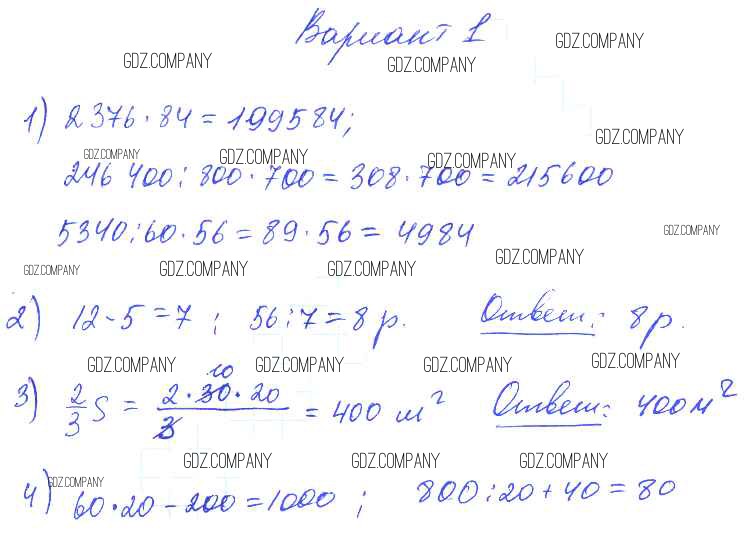 Вариант 1
GDZ.COMPANY GDZ.COMPANY GDZ.COMPANY
1) 2376 · 84 = 199584;
GDZ.COMPANY
GDZ.COMPANY GDZ.COMPANY GDZ.COMPANY
246 400 : 800 · 700 = 308 · 700 = 215600
5340 : 60 · 56 = 89 · 56 = 4984
GDZ.COMPANY
GDZ.COMPANY GDZ.COMPANY GDZ.COMPANY GDZ.COMPANY
2) 12 - 5 = 7 ; 56 : 7 = 8 р. Ответ: 8 р.
GDZ.COMPANY GDZ.COMPANY GDZ.COMPANY GDZ.COMPANY
3) 2/3 S = 2 · 30 · 20 / 3 = 400 м² Ответ: 400 м²
10
GDZ.COMPANY GDZ.COMPANY GDZ.COMPANY
GDZ.COMPANY
4) 60 · 20 - 200 = 1000 ; 800 : 20 + 40 = 80